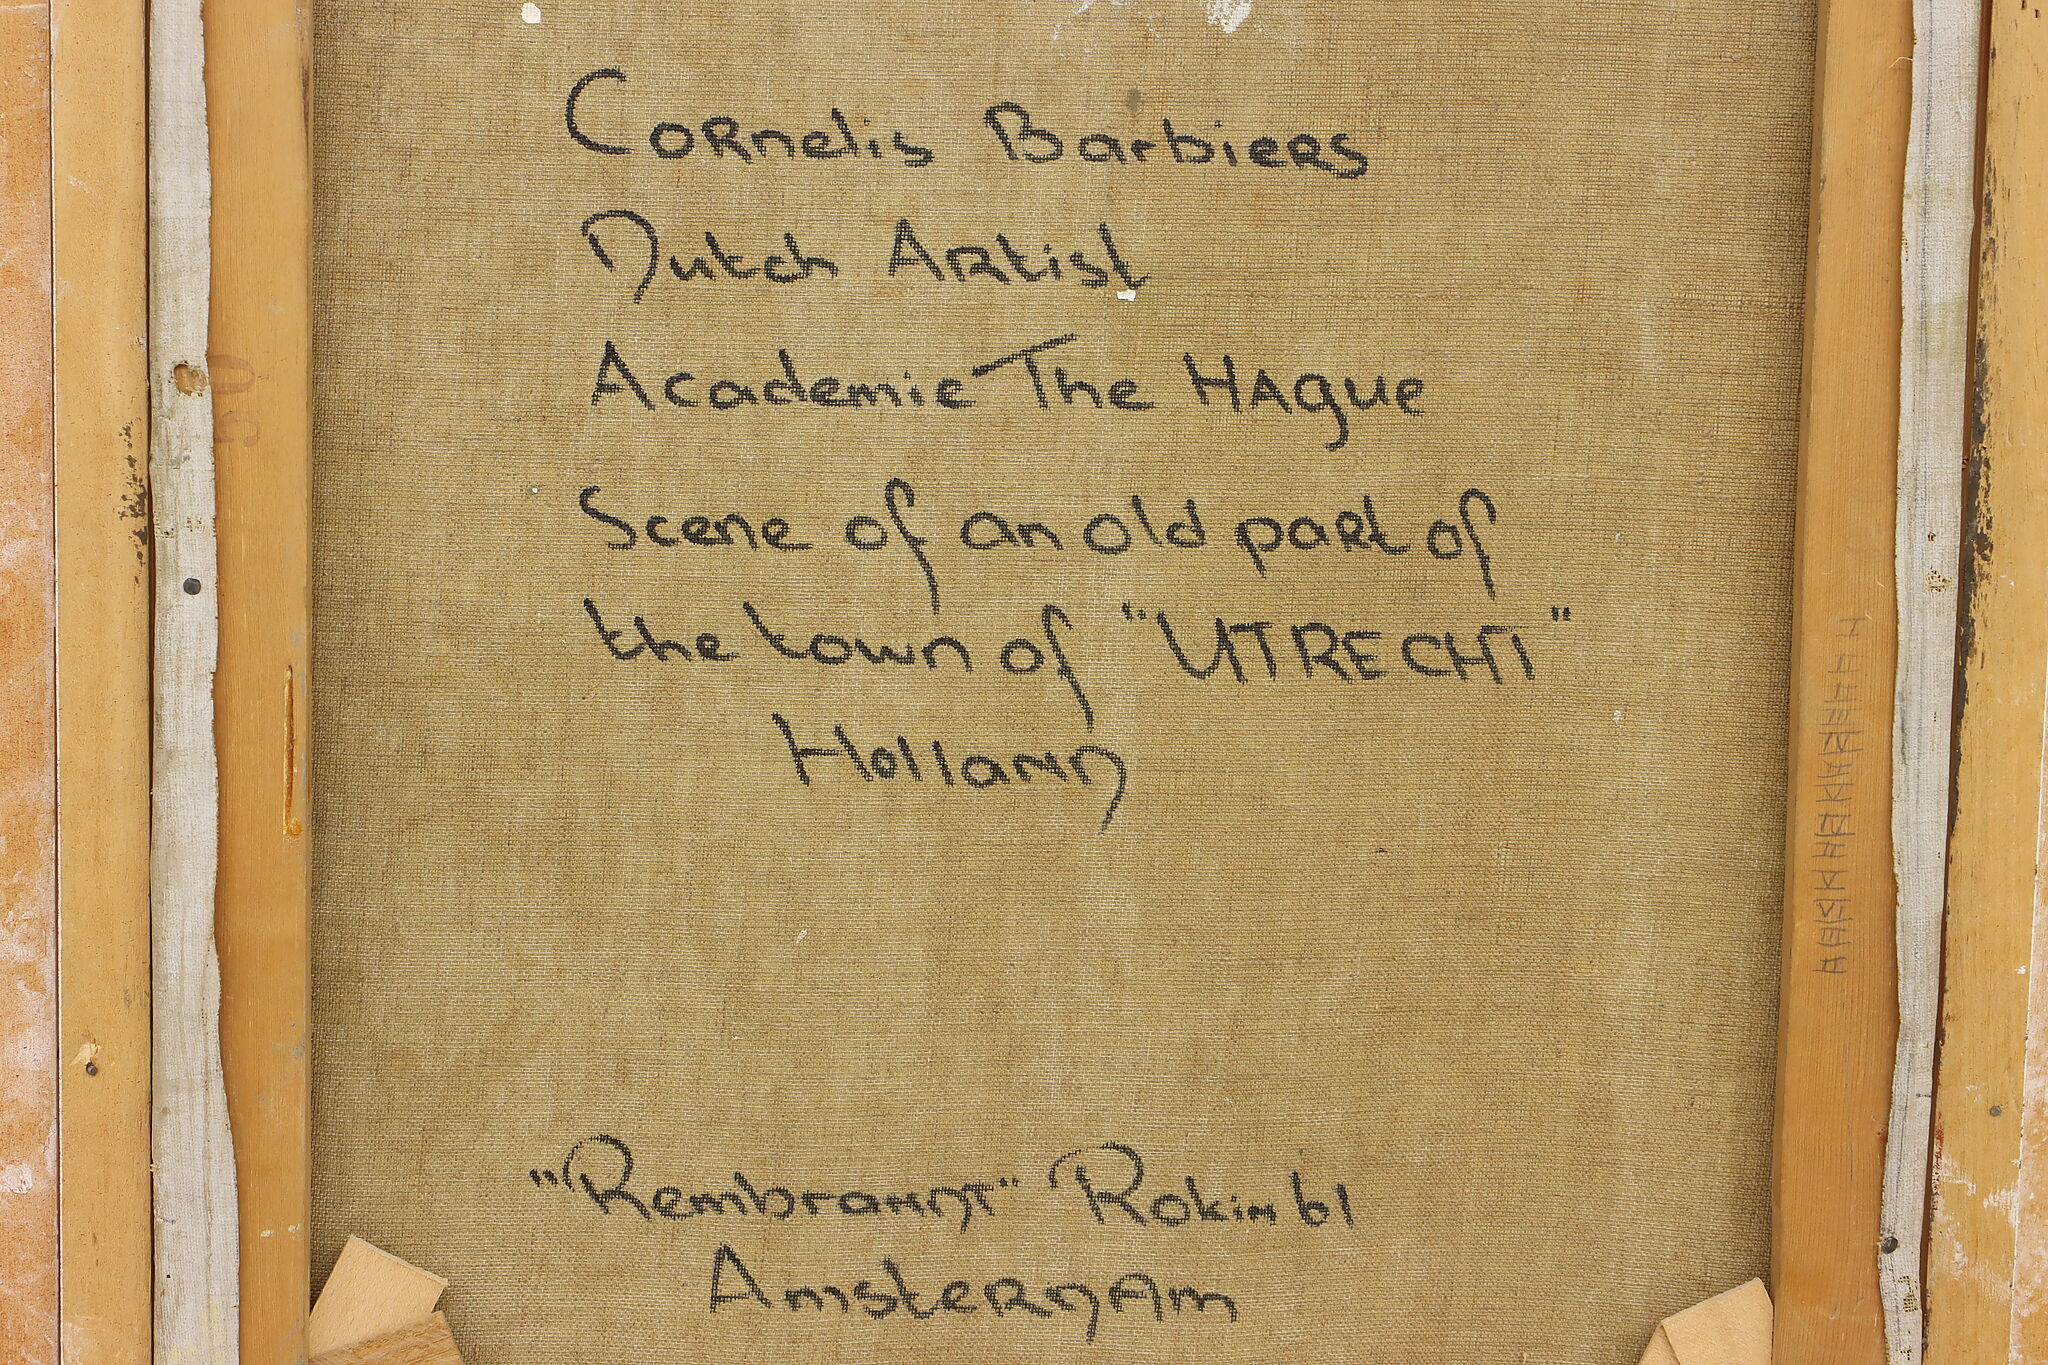 Cornelis Barbiers
Dutch Artist
Academie The Hague
Scene of an old part of
the town of "UTRECHT"
Holland
"Rembrandt" Rokin 61
Amsterdam